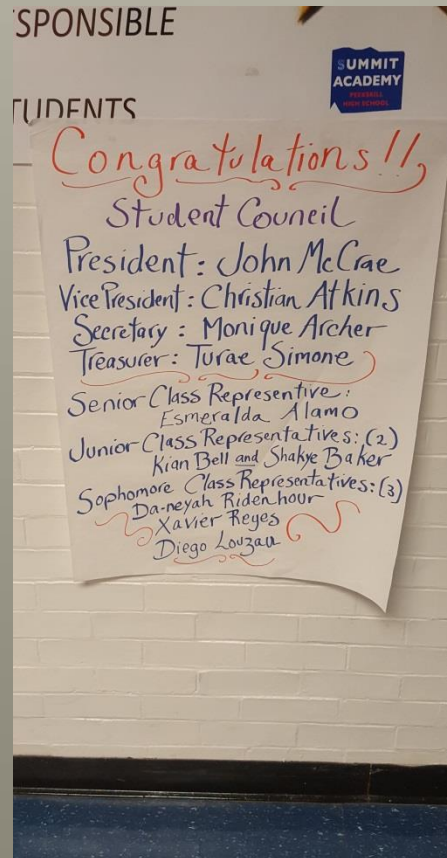 SPONSIBLE
SUMMIT
ACADEMY
PEEKSKILL
HIGH SCHOOL
TUDENTS
Congratulations!!
Student Council
President: John McCrae
Vice President: Christian Atkins
Secretary: Monique Archer
Treasurer: Turae Simone
Senior Class Representive:
Esmeralda Alamo
Junior Class Representatives: (2)
Kian Bell and Shakye Baker
Sophomore Class Representatives: (3)
Da-neyah Ridenhour
Xavier Reyes
Diego Louzau